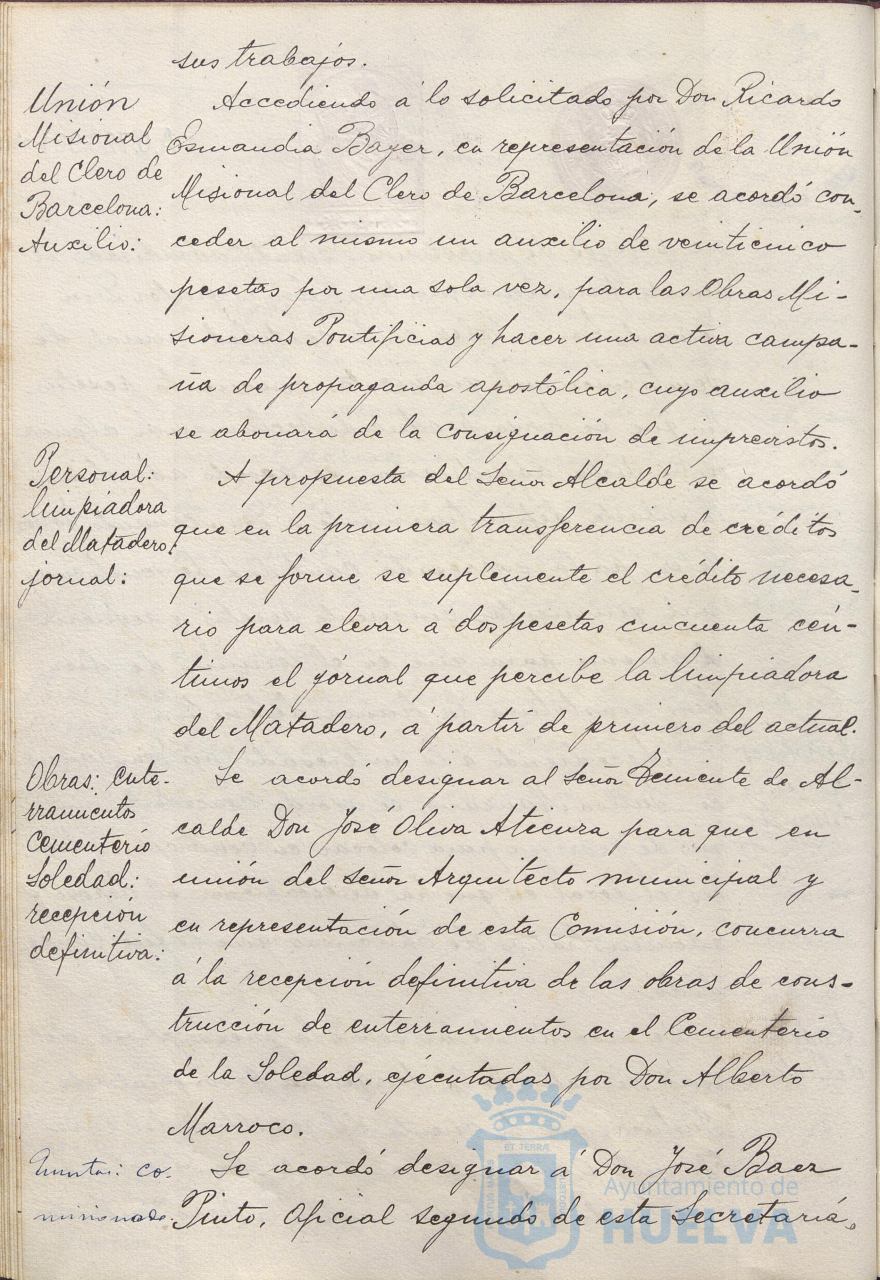 sus trabajos.
Unión
Misional
del Clero de
Barcelona:
Auxilio:
Accediendo á lo solicitado por Don Ricardo
Esmandia Bayer, en representación de la Unión
Misional del Clero de Barcelona, se acordó con-
ceder al mismo un auxilio de veinticinco
pesetas por una sola vez, para las Obras Mi-
sioneras Pontificias y hacer una activa campa-
ña de propaganda apostólica, cuyo auxilio
se abonará de la consignación de imprevistos.
Personal:
limpiadora
del Matadero:
jornal:
A propuesta del Señor Alcalde se acordó
que en la primera transferencia de créditos
que se forme se suplemente el crédito necesa-
rio para elevar á dos pesetas cincuenta cén-
timos el jornal que percibe la limpiadora
del Matadero, á partir de primero del actual.
Obras: ente-
rramientos
Cementerio
Soledad:
recepción
definitiva:
Se acordó designar al señor Teniente de Al-
calde Don José Oliva Atienza para que en
unión del señor Arquitecto municipal y
en representación de esta Comisión, concurra
á la recepción definitiva de las obras de cons-
trucción de enterramientos en el Cementerio
de la Soledad, ejecutadas por Don Alberto
Marroco.
co-
misionado:
Se acordó designar á Don José Baez
Pinto, Oficial segundo de esta Secretaría,
Ayuntamiento de
HUELVA